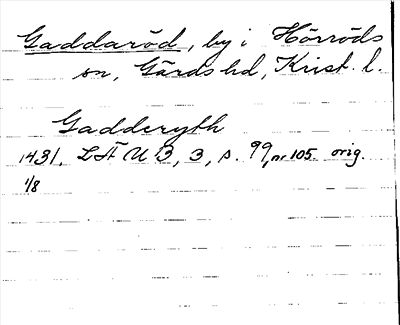 Gaddaröd, by i Hörröds
sn, Gärds hd, Krist. l.
Gadderyth
1431. LÄU 3, 3, s. 99, nr 105. orig.
1/8